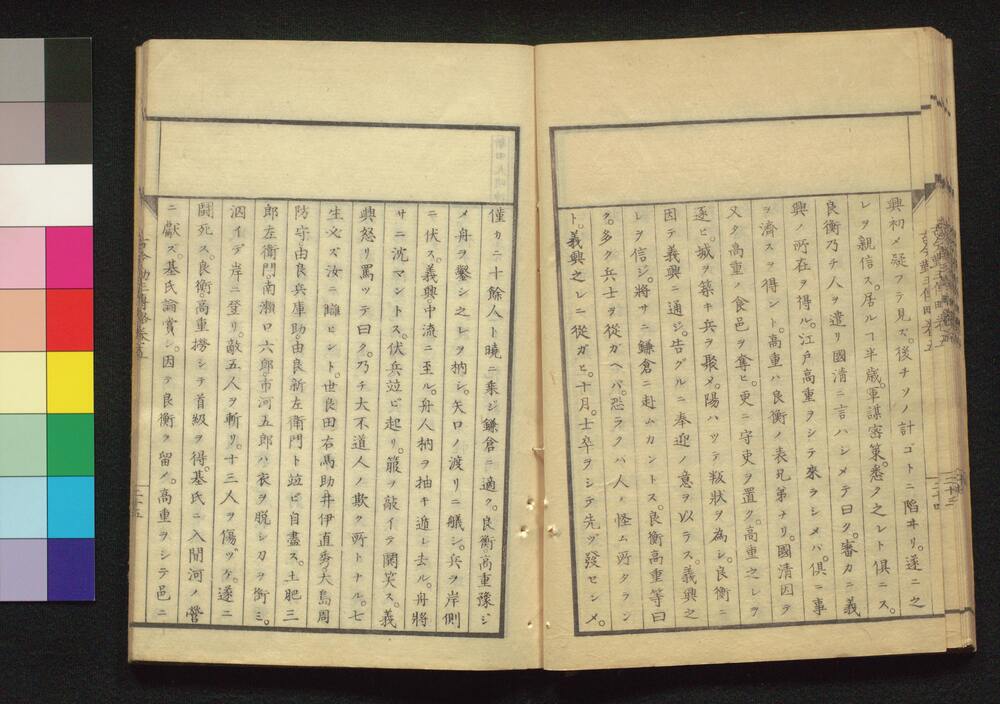 興初メ疑フテ見ズ。後チソノ計ゴトニ陷ヰリ。遂ニ之
レヲ親信ス。居ルヿ半歳。軍謀密策。悉ク之レト俱ニス。
良衡乃チ人ヲ遣リ國清ニ言ハシメテ曰ク。審カニ義
興ノ所在ヲ得ル。江戸高重ヲシテ來ラシメバ。俱ニ事
ヲ濟スヲ得ント。高重ハ良衡ノ表兄弟ナリ。國清因テ
又タ高重ノ食邑ヲ奪ヒ。更ニ守吏ヲ置ク。高重之レヲ
逐ヒ。城ヲ築キ兵ヲ聚メ。陽ハツテ叛狀ヲ為シ。良衡ニ
因テ義興ニ通ジ。告グルニ奉迎ノ意ヲ以ラス。義興之
レヲ信ジ。將サニ鎌倉ニ赴ムカントス。良衡高重等曰
ク。多ク兵士ヲ從ガヘバ。恐ラクハ人ノ怪ム所タラン
ト。義興之レニ從ガヒ。十月。士卒ヲシテ先ヅ發セシメ。
僅カニ十餘人ト曉ニ乘ジ鎌倉ニ適ク。良衡高重豫ジ
メ舟ヲ鑿シ之レヲ枘シ。矢口ノ渡リニ艤シ。兵ヲ岸側
ニ伏ス。義興。中流ニ至ル。舟人枘ヲ抽キ遁レ去ル。舟將
サニ沈マントス。伏兵竝ビ起リ。箙ヲ敲イテ鬨笑ス。義
興怒リ罵ツテ曰ク。乃チ大不道人ノ欺ク所トナル。七
生必ズ汝ニ讎ヒント。世良田右馬助井伊直秀。大島周
防守由良兵庫助。由良新左衛門ト竝ビ自盡ス。土肥三
郎左衛門。南瀬口六郎。市河五郎ハ衣ヲ脱シ刀ヲ銜ミ。
泅イデ岸ニ登リ。敵五人ヲ斬リ。十三人ヲ傷ヅケ。遂ニ
鬪死ス。良衡。高重撈シテ首級ヲ得。基氏ニ入間河ノ營
ニ獻ズ。基氏論賞シ。因テ良衡ヲ留メ。高重ヲシテ邑ニ
二十五